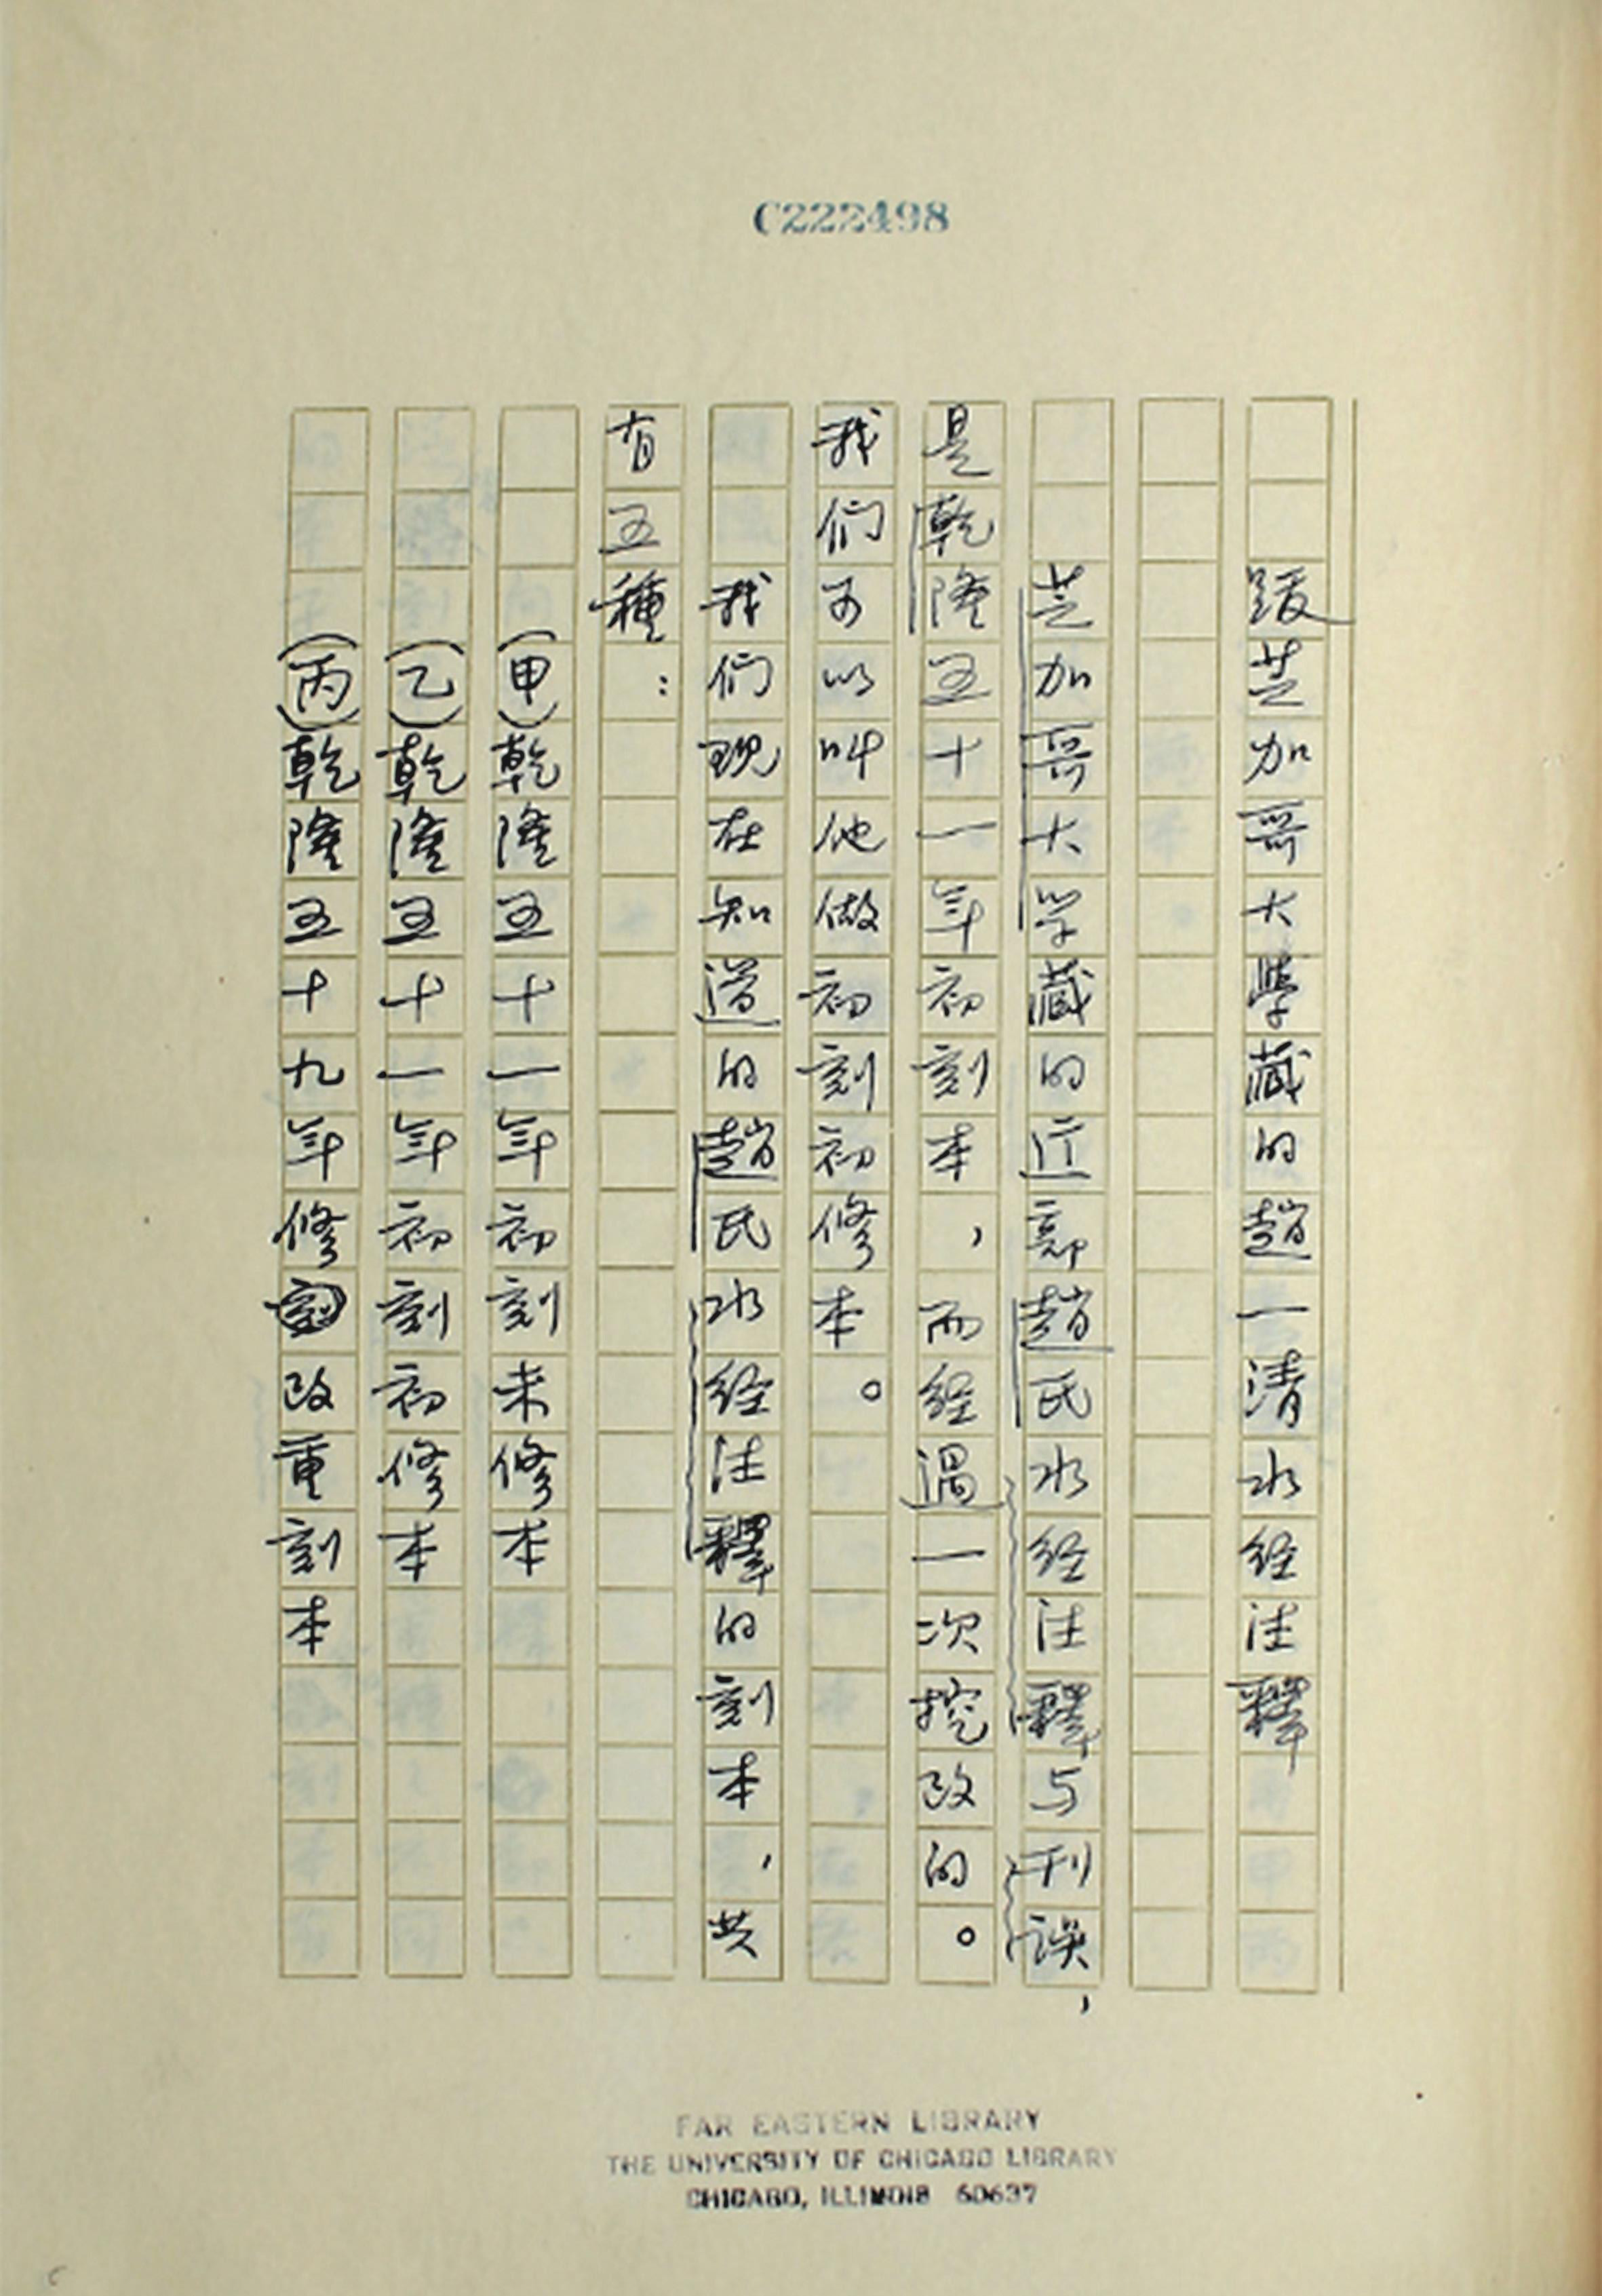 C222498
跋芝加哥大學藏的趙一清水经注釋
芝加哥大学藏的近鄣趙氏水经注釋与刊误，
是乾隆五十一年初刻本，而经過一次挖改的。
我们可以叫他做初刻初修本。
我们现在知道的趙氏水经注釋的刻本，共
有五種：
(甲)乾隆五十一年初刻未修本
(乙)乾隆五十一年初刻初修本
(丙)乾隆五十九年修改重刻本
FAR EASTERN LIBRARY
THE UNIVERSITY OF CHICAGO LIBRARY
CHICAGO, ILLINOIS 60637